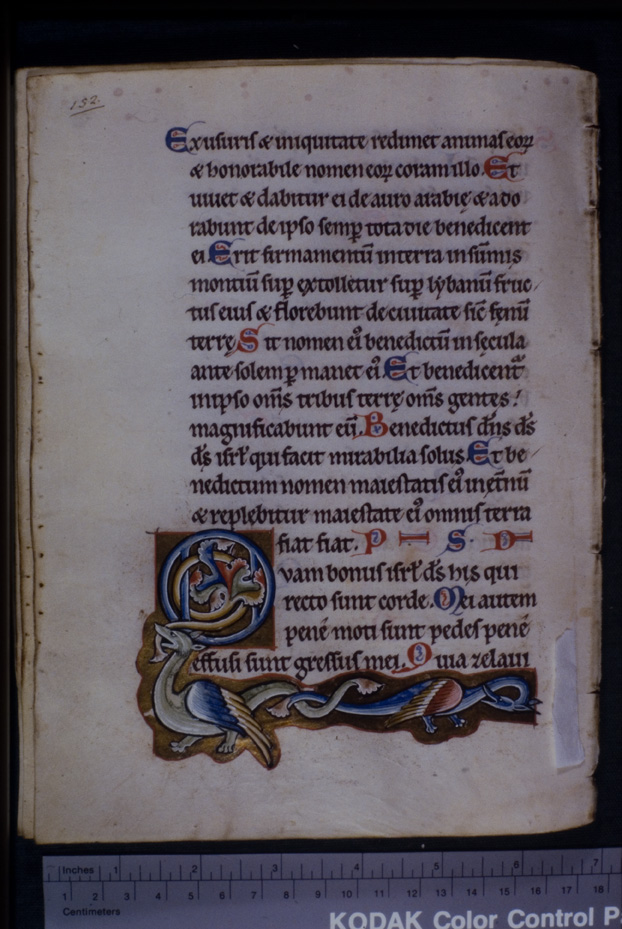 152.
Exusuris & iniquitate redimet animas eoꝝ
& honorabile nomen eoꝝ coram illo. Et
uiuet & dabitur ei de auro arabię & ado
rabunt de ipso semꝑ tota die benedicent
ei. Erit firmamentū in terra in sūmis
montiū suꝑ extolletur suꝑ lẏbanū fruc/
tus eius & florebunt de ciuitate sic̄ fęnū
terrę. Sit nomen ei᾽ benedictū in sęcula
ante solem ꝑmanet ei᾽. Et benedicent᷑
in ipso om̄s tribus terrę om̄s gentes
magnificabunt eū. Benedictus dn̄s ds̄
ds̄ isrł qui facit mirabilia solus. Et be/
nedictum nomen maiestatis ei᾽ in et̄nū
& replebitur maiestate ei᾽ omnis terra
fiat fiat. P S. D
Quam bonus isrł ds̄ his qui
recto sunt corde. Mei autem
penę moti sunt pedes penę
effusi sunt gressus mei. Quia zelaui
Inches 1 2 3 4 5 6 7
1 2 3 4 5 6 7 8 9 10 11 12 13 14 15 16 17 18
Centimeters
KODAK Color Control